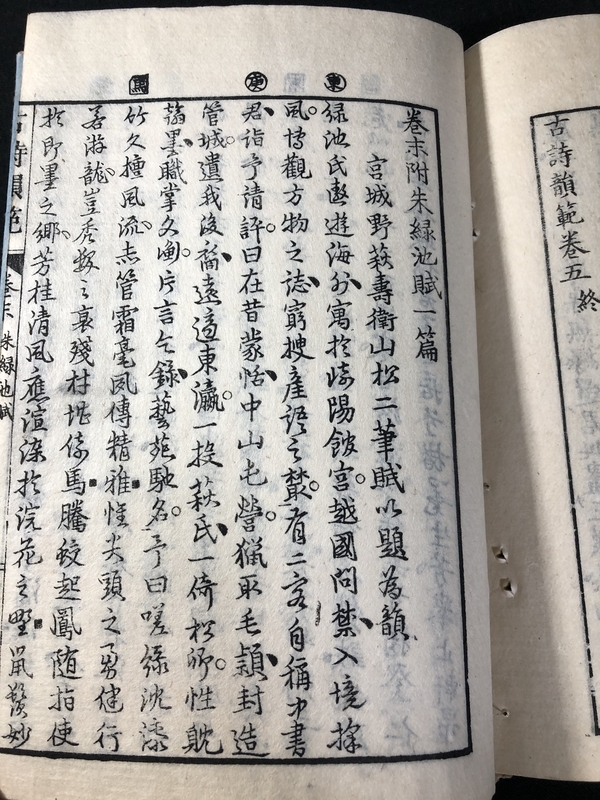 古詩韻範卷五 終
東 庚 馬
卷末附朱緑池賦一篇
宮城野萩壽衛山松二筆賦以題為韻
緑池氏遨遊海外寓於崎陽館宮越國問禁入境採
風博觀方物之誌窮搜産語之叢有二客自稱中書
君詣予請評曰在昔蒙恬中山屯營獵取毛穎封造
管城遺我後裔遠適東瀛一投萩氏一倚松卿性耽
翰墨職掌文衡片言之錄藝苑馳名予曰嗟緑沈漆
竹久擅風流赤管霜毫夙傳精雅惟尖頭之勇健行
若游龍豈禿友之衰殘材堪倚馬騰蛟起鳳随指使
於即墨之鄉芳桂清風應渲染於浣花之野鼠鬚妙
古詩韻範 卷末 朱緑池賦